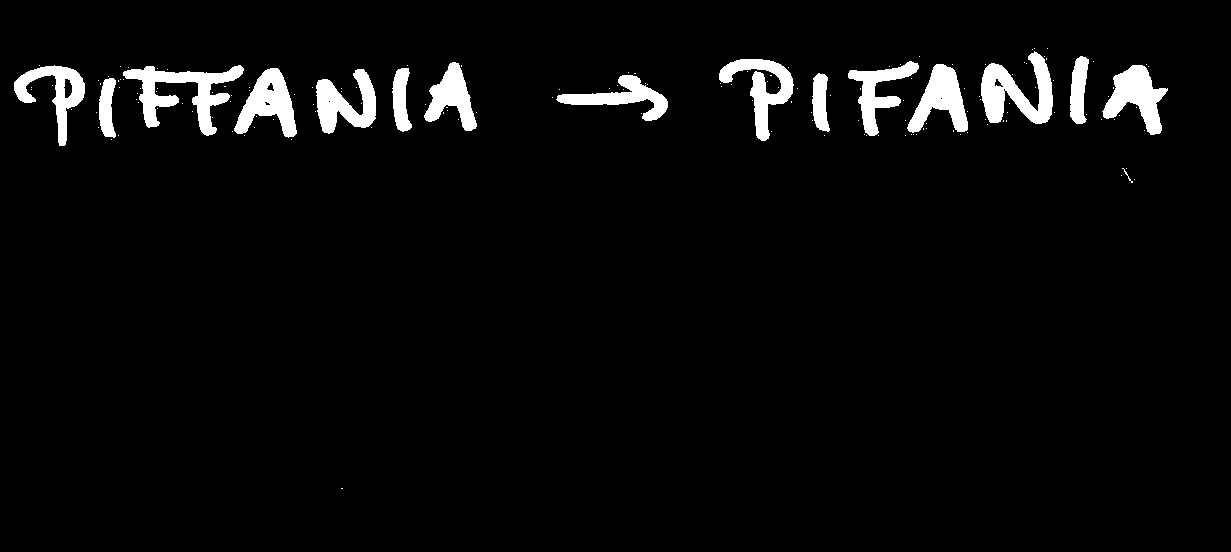 PIFFANIA → PIFANIA